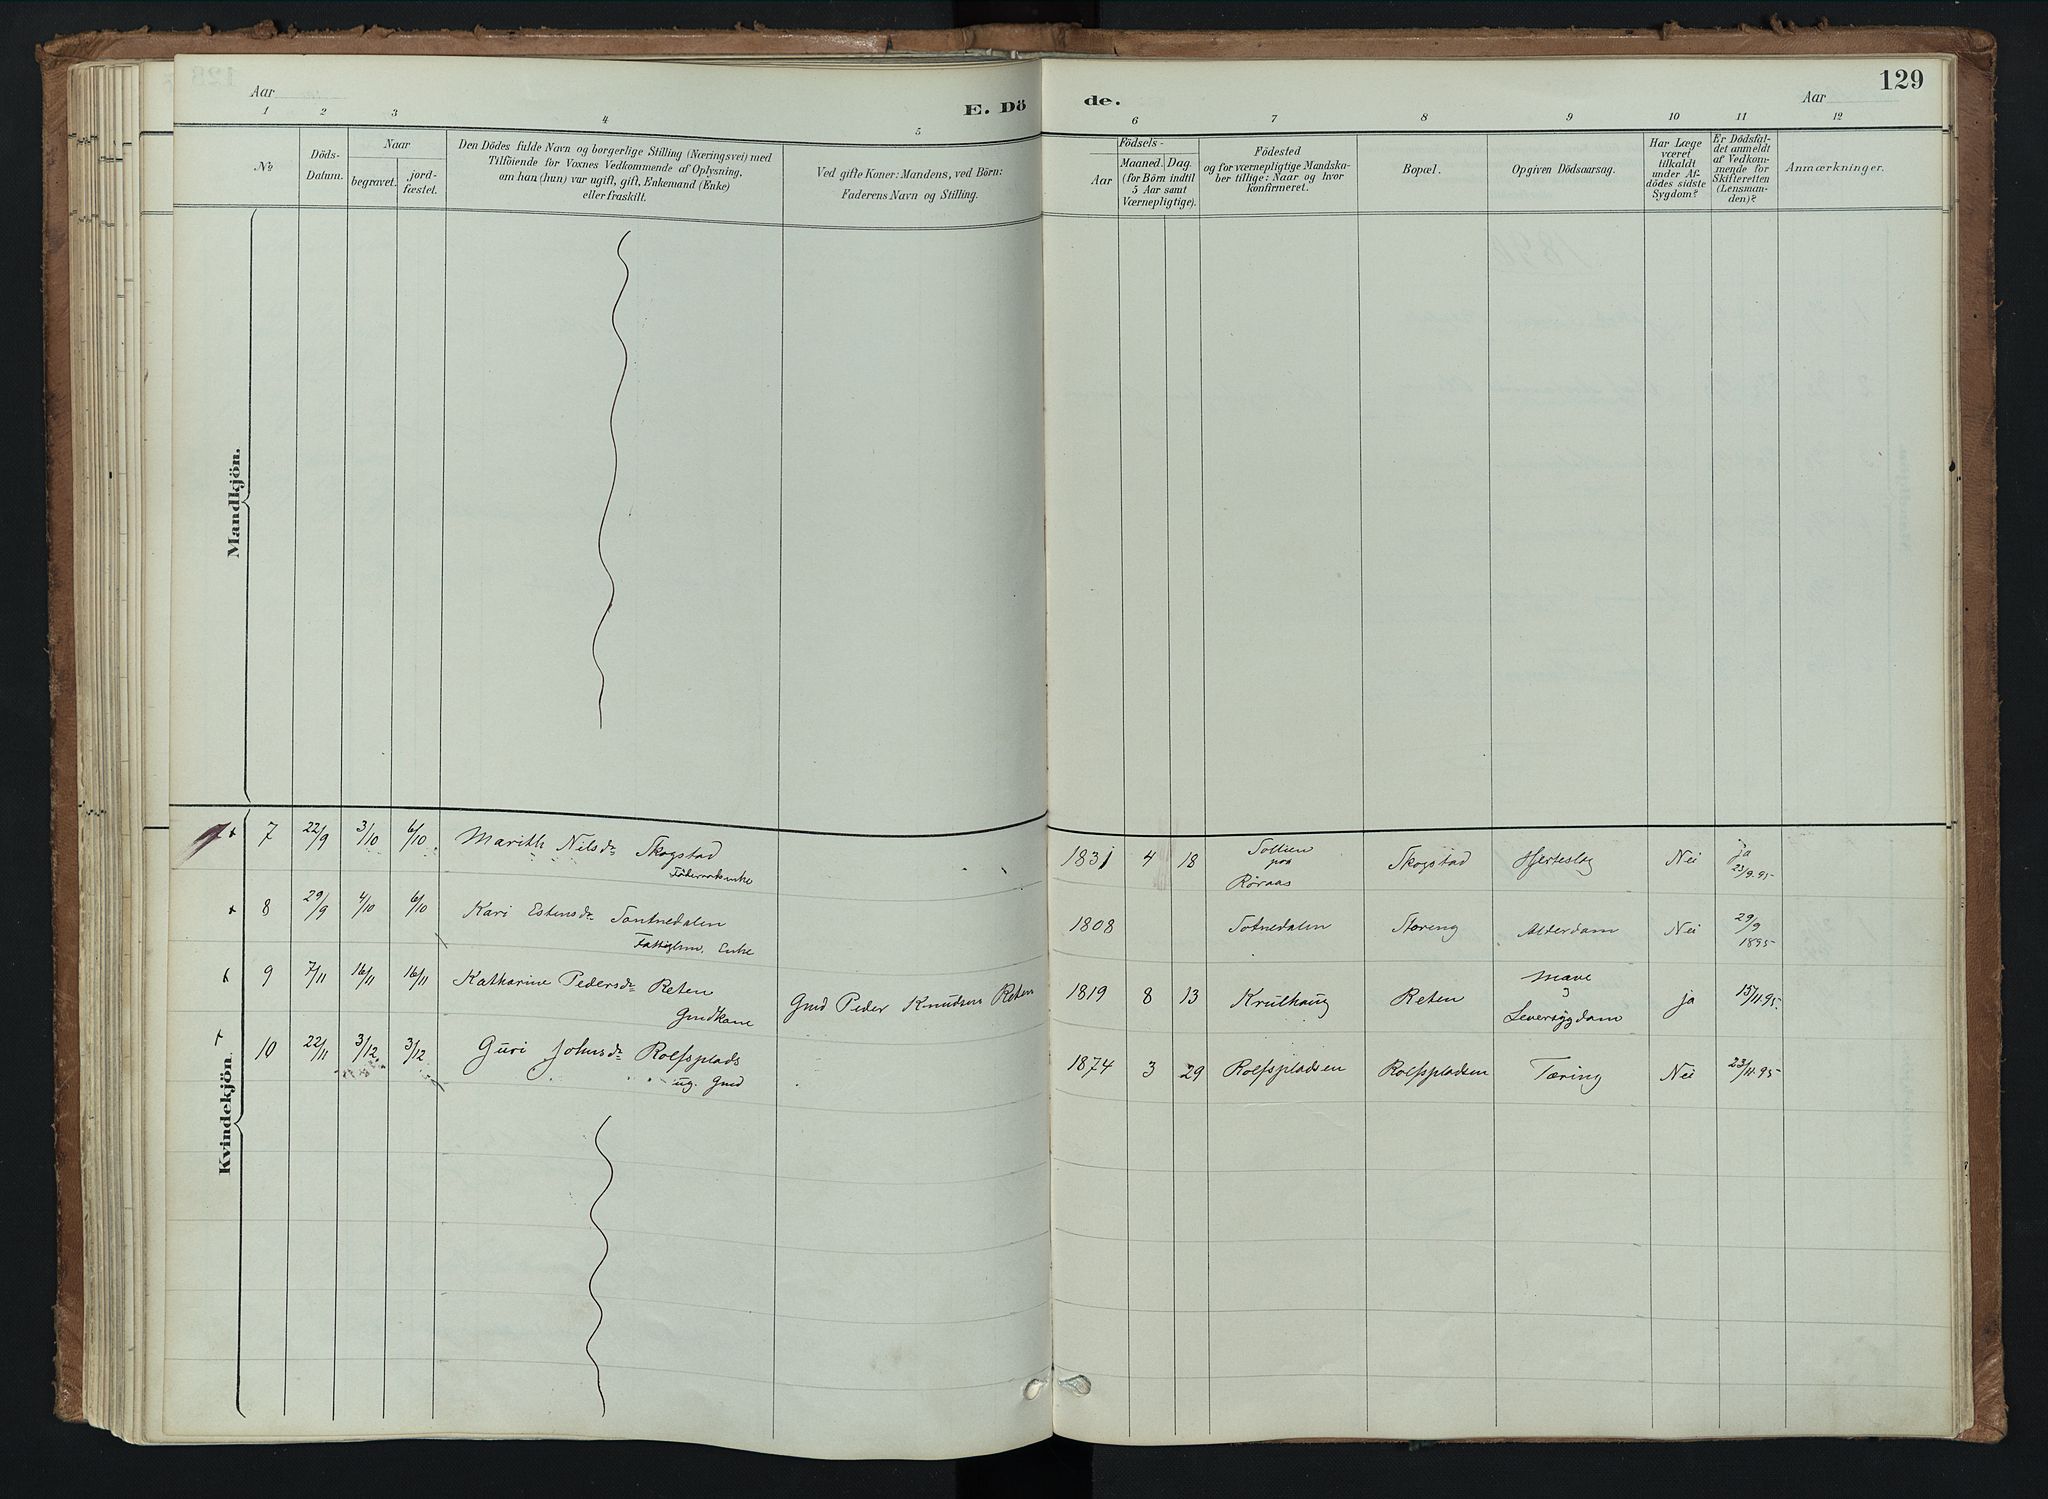 129
Aar
E. Dö
de.
Aar
1 2 3 4 5 6 7 8 9 10 11 12
No.
Döds-
Datum.
Naar
begravet.
jord-
fæstet.
Den Dödes fulde Navn og borgerlige Stilling (Næringsvei) med
Tilföiende for Voxnes Vedkommende af Oplysning,
om han (hun) var ugift, gift, Enkemand (Enke)
eller fraskilt.
Ved gifte Koner: Mandens, ved Börn:
Faderens Navn og Stilling.
Födsels-
Aar
Maaned. Dag.
(for Börn indtil
5 Aar samt
Værnepligtige).
Födested
og for værnepligtige Mandska-
ber tillige: Naar og hvor
konfirmeret.
Bopæl.
Opgiven Dödsaarsag.
Har Læge
været
tilkaldt
under Af-
dödes sidste
Sygdom?
Er Dödsfal-
det anmeldt
af Vedkom-
mende for
Skifteretten
(Lensman-
den)?
Anmærkninger.
Mandkjön.
Kvindekjön.
7 22/9 3/10 6/10 Marith Nilsdr Skogstad
1831 4 18 Tollien
paa
Röraas
Skogstad Hjerteslag Nei ja
23/9.95
8 29/9 4/10 6/10 Kari Estensdr Tontnedalen
Fattiglem. Enke
1808 Totnedalen Storeng Alderdom Nei 29/9
1895
9 7/11 16/11 16/11 Katharine Pedersdr Reten
Gmdkone
Gmd Peder Knudsen Reten
1819 8 13 Krulhaug Reten Mave
Leversygdom
ja 15/11.95
10 22/11 3/12 3/12 Guri Johnsdr Rolfsplads
ug. Gmd
1874 3 29 Rolfspladsen Rolfspladsen Tæring Nei 23/11.95